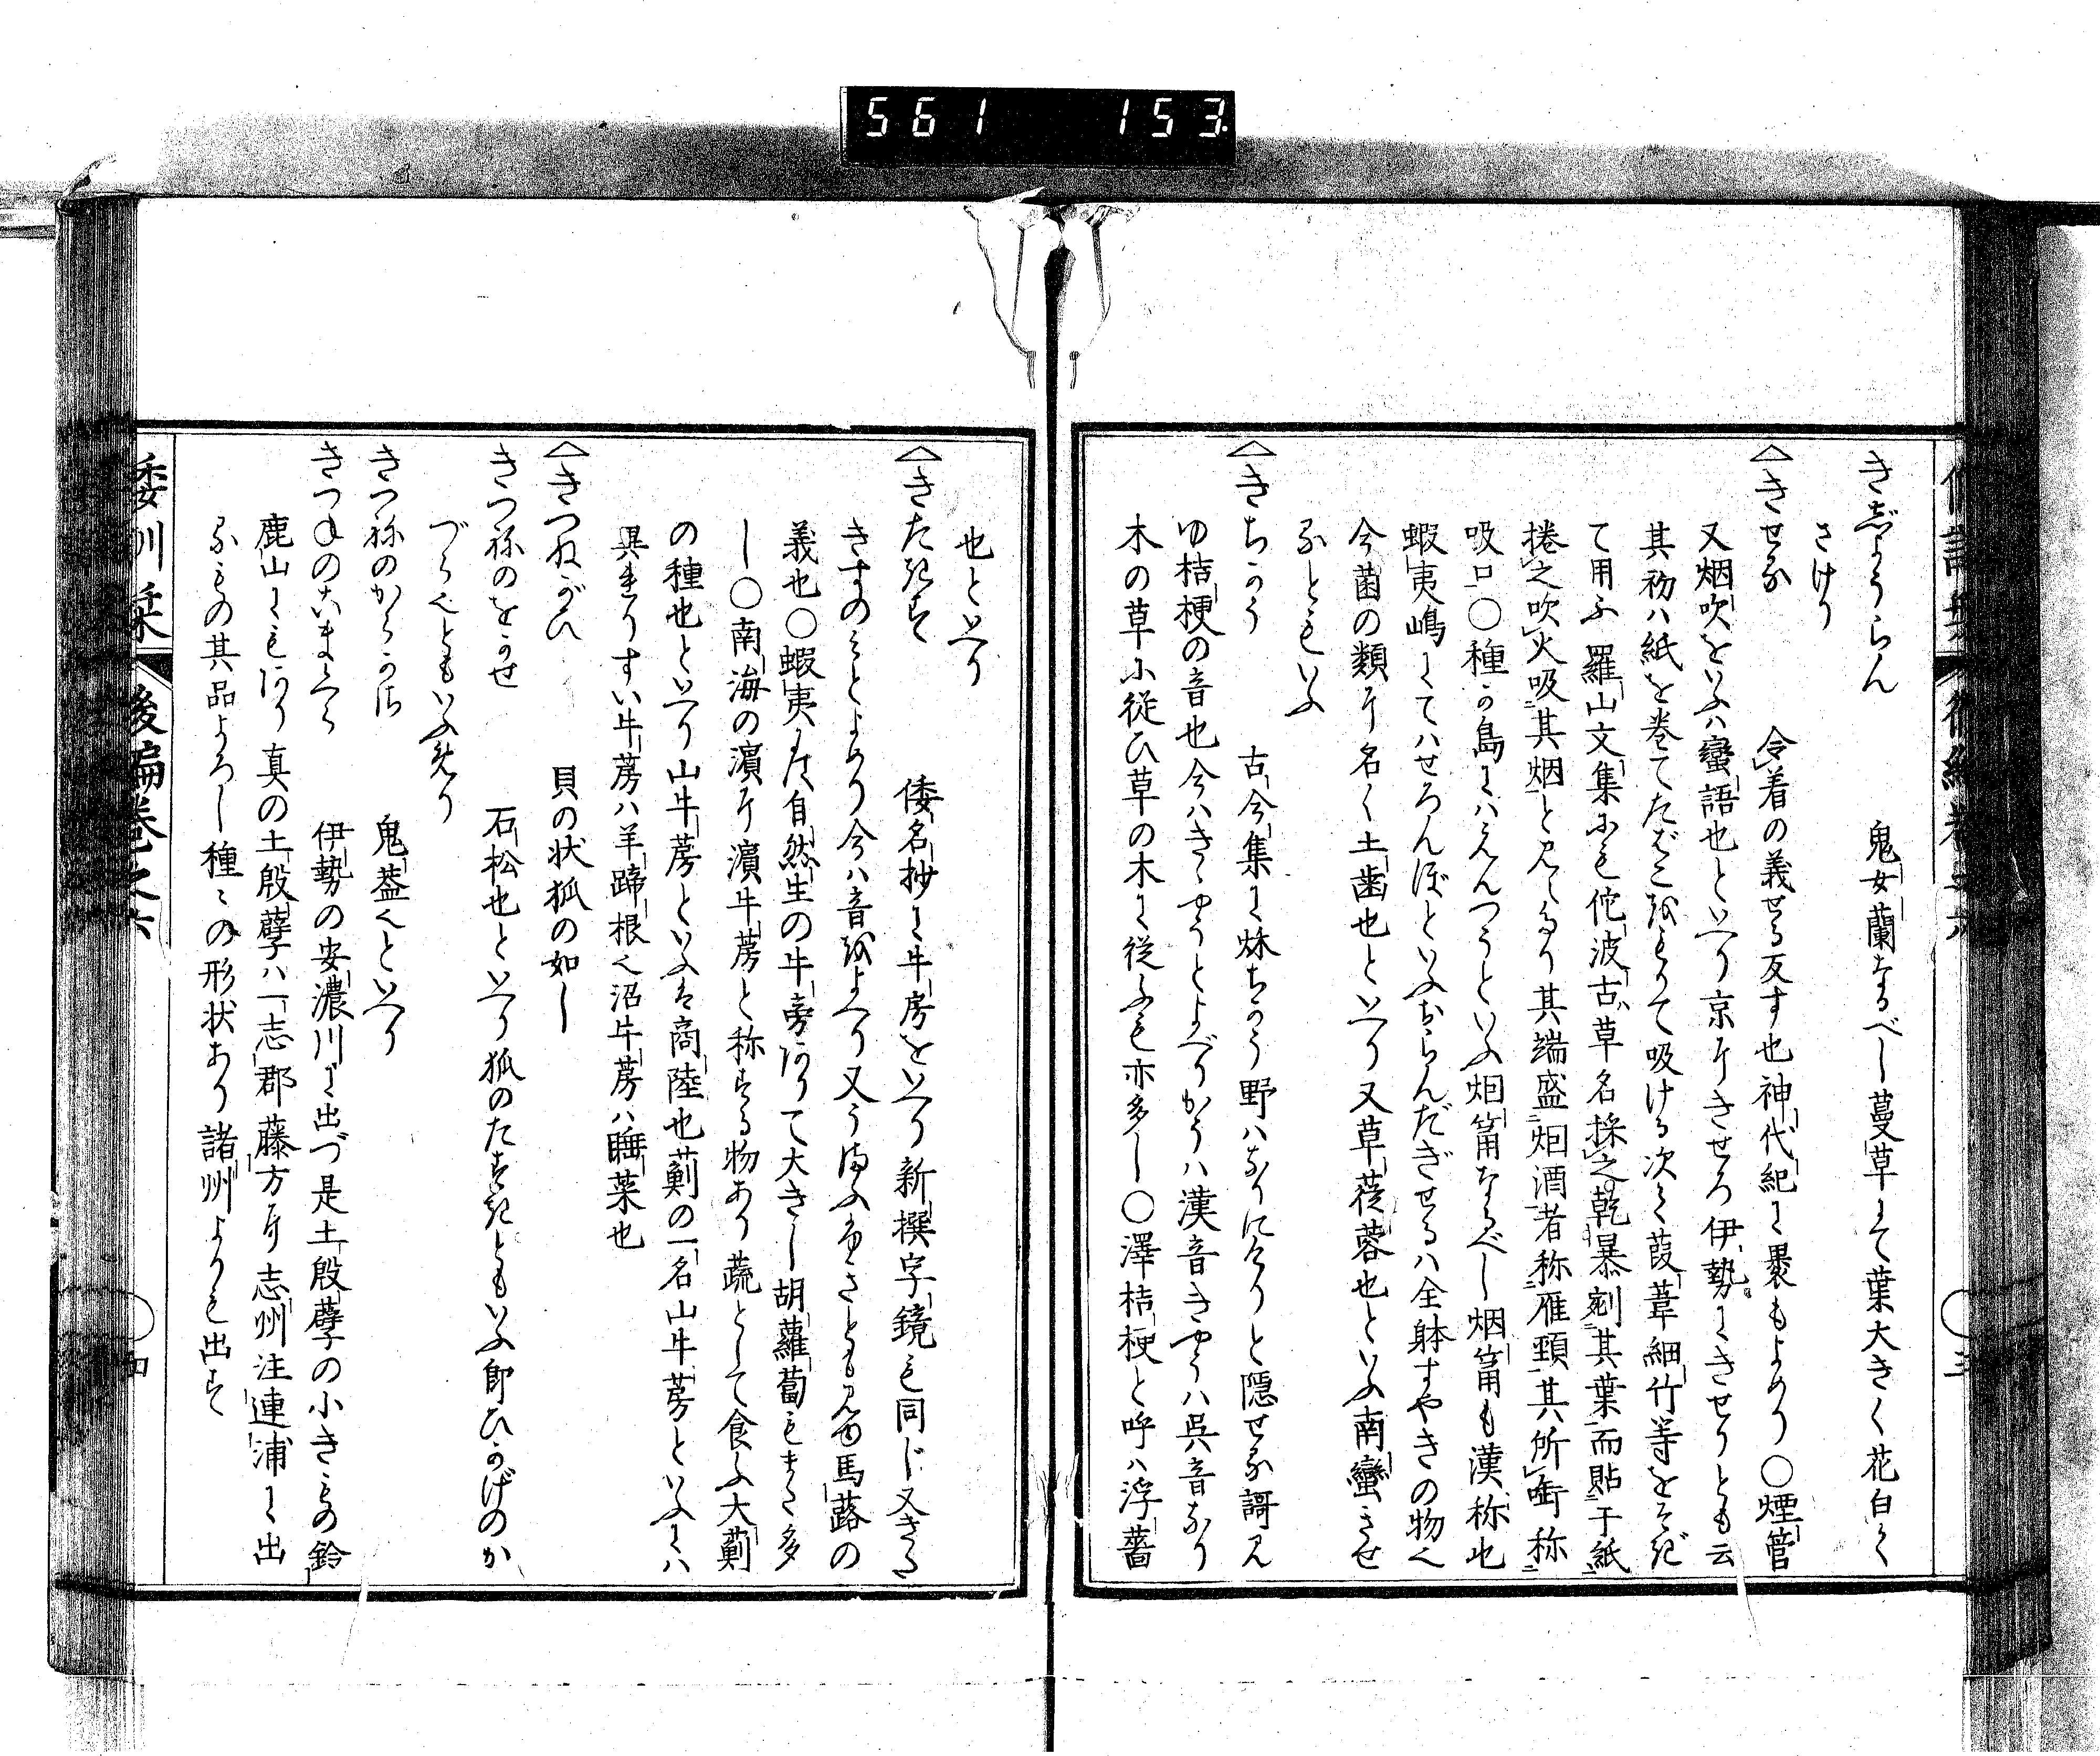 561 153.
きじようらん 鬼女蘭なるべし蔓草にて葉大きく花白く
さけり
きせる 令着の義せる反す也神代紀に褁もよめり〇煙管
又烟吹をいふハ蠻語也といへり京にきせろ伊勢にきせりとも云
其初ハ紙を巻てたばこをもりて吸ける次に葭葦細竹等をそぎ
て用ふ羅山文集にも佗波古草名採之乾暴剉其葉而貼于紙
捲之吹火吸其烟と見えたり其端盛烟酒者称雁頸其所銜称
吸口〇種か島にハえんつうといふ烟筩なるべし烟筩も漢称也
蝦夷嶋にてハせろんぼといふおらんだぎせるハ全躰すやきの物也
今菌の類に名く土歯也といへり又草蓯蓉也といふ南蠻きせ
るともいふ
きちかう 古今集に秋ちかう野ハなりにけりと隠せる謌見
ゆ桔梗の音也今ハきゝやうとよべりかうハ漢音きやうハ呉音なり
木の草に従ひ草の木に従ふも亦多し〇澤桔梗と呼ハ浮薔
也といへり
きたきす 倭名抄に牛房をいへり新撰字鏡も同じ又きた
きすのみとよめり今ハ音をよべり又うまふふきとも見ゆ馬蕗の
義也〇蝦夷には自然生の牛旁ありて大きし胡蘿蔔もまた多
し〇南海の濱に濱牛蒡と称する物あり蔬として食ふ大薊
の種也といへり山牛蒡といふは商陸也薊の一名山牛蒡といふにハ
異れりすい牛蒡ハ羊蹄根也沼牛蒡ハ睡菜也
きつねがひ 貝の状狐の如し
きつねのをかせ 石松也といへり狐のたすきともいふ即ひかげのか
づら也ともいふめり
きつねのからかさ 鬼葢也といへり
きつねのこまくら 伊勢の安濃川に出づ是土殷孽の小きもの鈴
鹿山にもあり真の土殷孽ハ一志郡藤方に志州注連浦に出
るもの其品よろし種々の形状あり諸州よりも出す
倭訓栞 後編巻之六